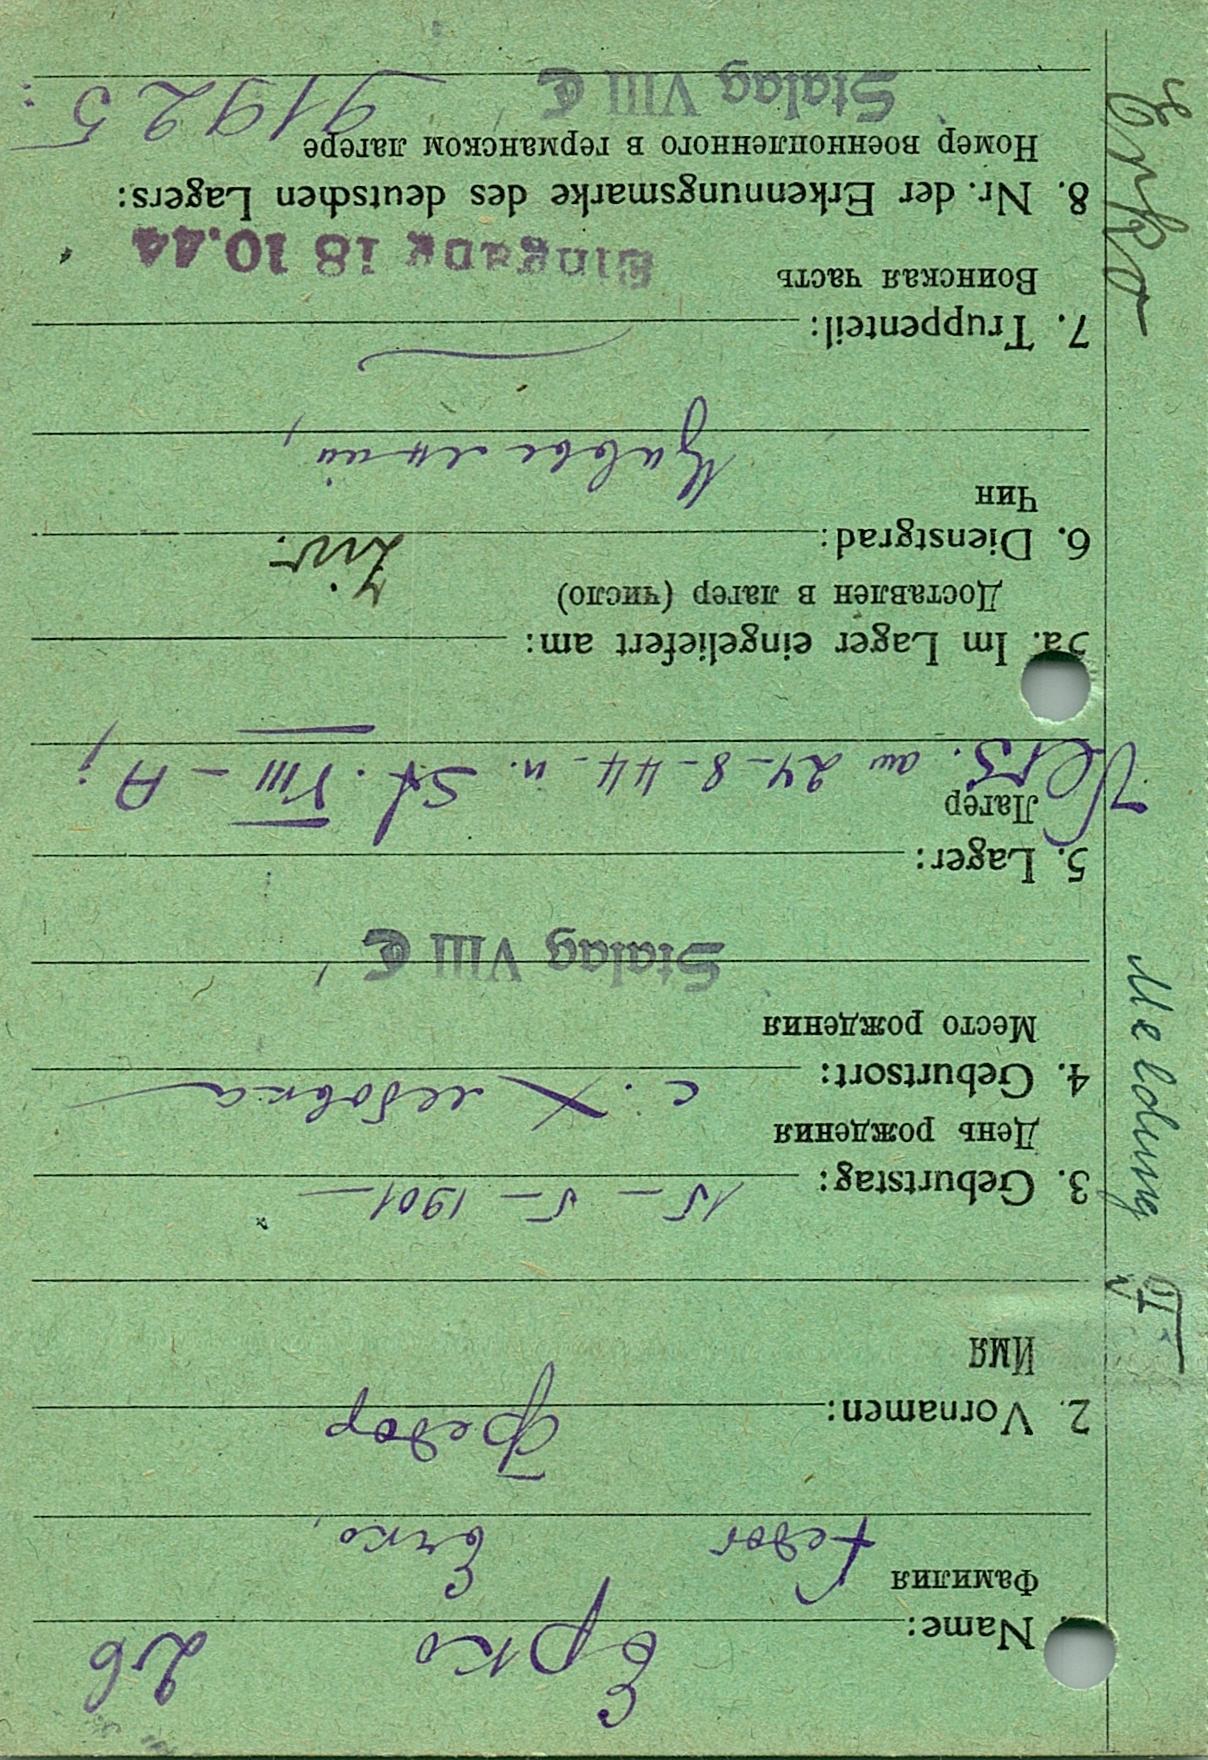 Name: Ерко 26
Фамилия
Fedor Erko,
2. Vornamen: Федор
Имя
3. Geburtstag: 15 – 5 – 1901 –
День рождения
4. Geburtsort: с. Хлебовка
Место рождения
Stalag VIII C
5. Lager:
Лагер
am 24-8-44- in St. VIII – A;
5a. Im Lager eingeliefert am:
Доставлен в лагер (число)
6. Dienstgrad: Ziv.
Чин
Цивельний,
7. Truppenteil:
Воинская часть
Eingang 18 10.44
8. Nr. der Erkennungsmarke des deutschen Lagers:
Номер военнопленного в германском лагере
Stalag VIII C 91925
Meldung VI
Erko